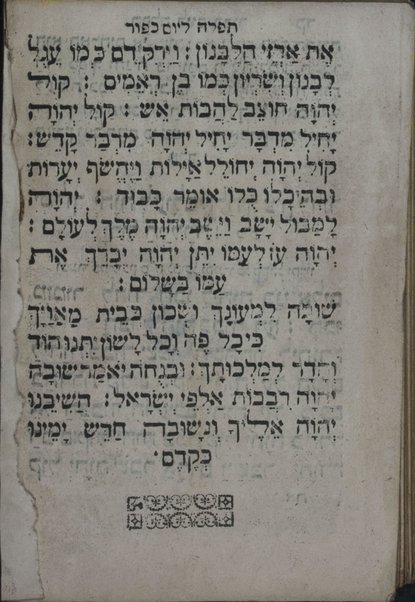 תפלה ליום כפור
אֶת אַרְזֵי הַלְּבָנוֹן : וַיַּרְקִידֵם כְּמוֹ עֵגֶל
לְבָנוֹן וְשִׂרְיוֹן כְּמוֹ בֶן רְאֵמִים : קוֹל
יְהוָה חוֹצֵב לַהֲבוֹת אֵשׁ : קוֹל יְהוָה
יָחִיל מִדְבָּר יָחִיל יְהוָה מִדְבַּר קָדֵשׁ :
קוֹל יְהוָה יְחוֹלֵל אַיָּלוֹת וַיֶּחֱשֹׂף יְעָרוֹת
וּבְהֵיכָלוֹ כֻּלּוֹ אוֹמֵר כָּבוֹד : יְהוָה
לַמַּבּוּל יָשָׁב וַיֵּשֶׁב יְהוָה מֶלֶךְ לְעוֹלָם :
יְהוָה עֹז לְעַמּוֹ יִתֵּן יְהוָה יְבָרֵךְ אֶת
עַמּוֹ בַשָּׁלוֹם :
שׁוּבָה לִמְעוֹנָךְ וּשְׁכוֹן בְּבֵית מַאֲוַיֶּךָ
כִּי כָל פֶּה וְכָל לָשׁוֹן יִתְּנוּ הוֹד
וְהָדָר לְמַלְכוּתָךְ : וּבְנֻחֹה יֹאמַר שׁוּבָה
יְהוָה רִבְבוֹת אַלְפֵי יִשְׂרָאֵל : הֲשִׁיבֵנוּ
יְהוָה אֵלֶיךָ וְנָשׁוּבָה חַדֵּשׁ יָמֵינוּ
כְּקֶדֶם .